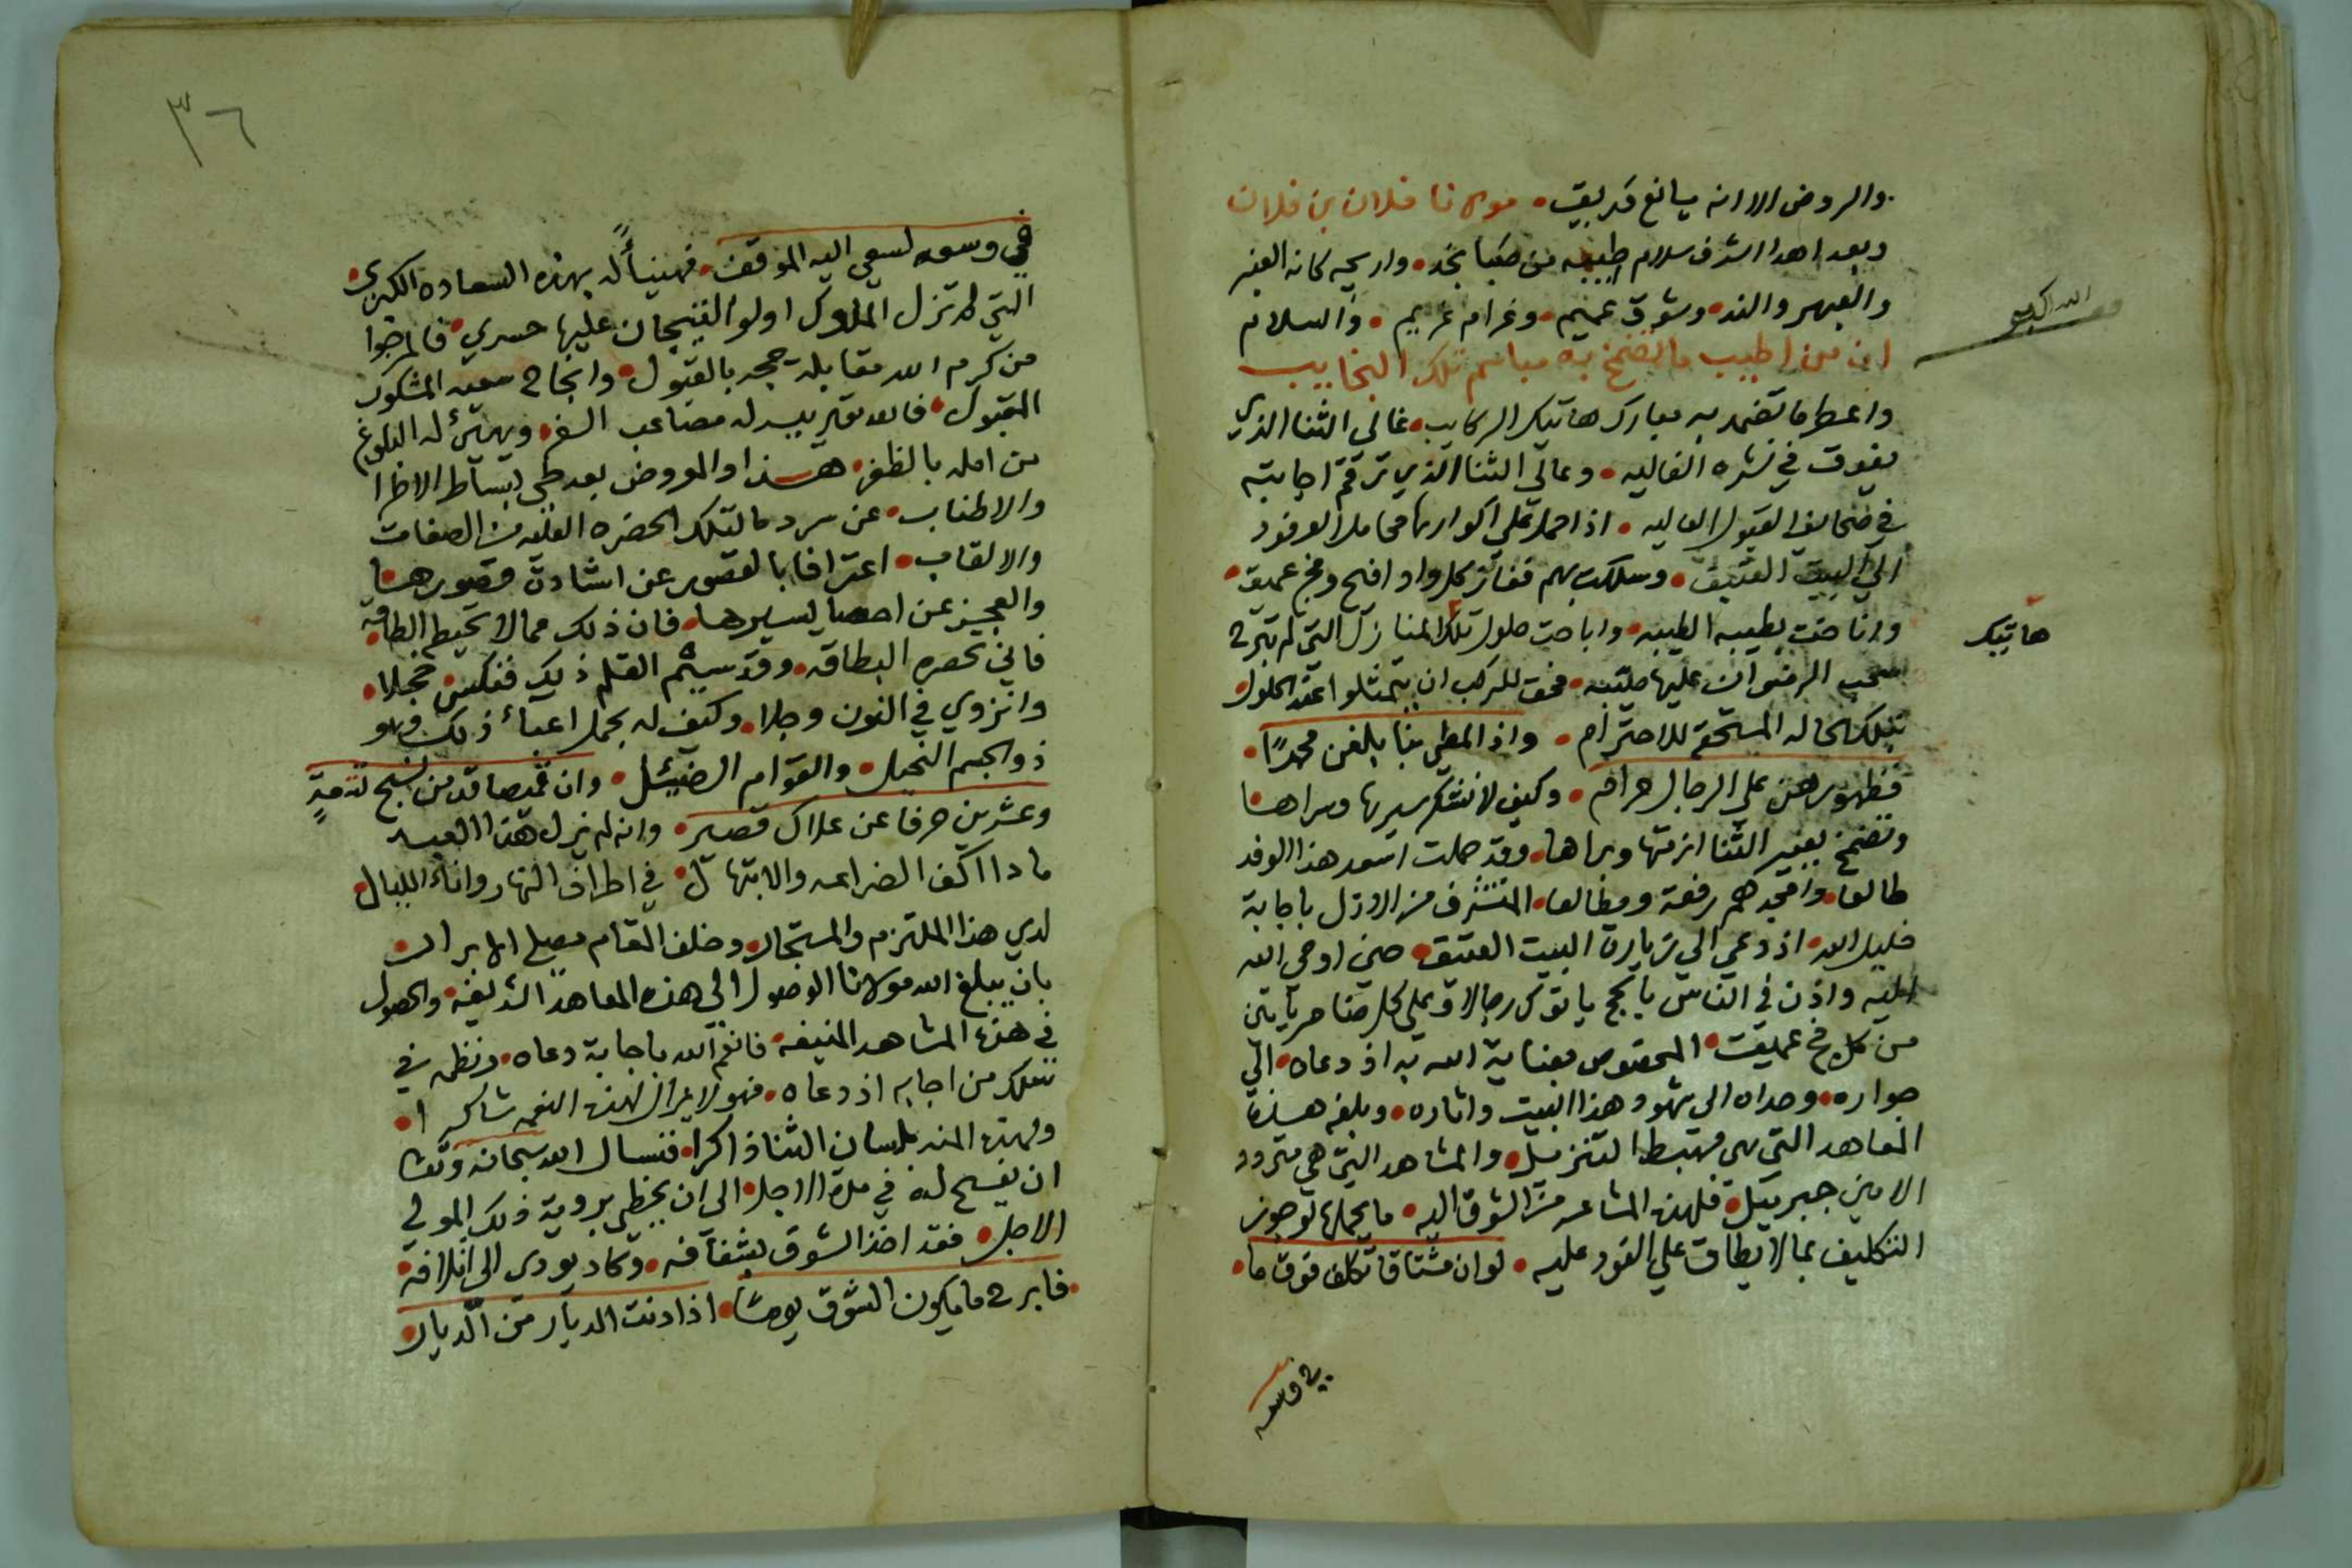 والروض الا انه يانع وريق • مولانا فلان بن فلان
وبعد اهدا اشرف سلام طيبه من صبا نجد • واريجه كانه العنبر
والعبهر والند • وشوق عميم • وغرام غريم • والسلام
ان من اطيب ما تضمخ به مباسم تلك النجايب
واعطر ما تضمد به مبارك هاتيك الركايب • غالي الثنا الذي
يفوق في نشره الغاليه • وعالي الثنا الذي ترقم اجابته
في صحايف القبول العاليه • اذا حملت علي اكوارها محامل الوفود
الي البيت العتيق • وسلكت بهم قفار كل واد افيح وفج عميق •
واناخت بطيبه الطيبه • واباحت حلول تلك المنازل التي لم تبرح
سحب الرضوان عليها صيبه • فحق للركب ان يتمثلوا عند الحلول
بتلك الحاله المستحقه للاحترام • واذا المطي بنا بلغن محمدًا •
فظهورهن علي الرجال حرام • وكيف لا نشكر سيرها وسراها
وتضمخ بعبير الثنا ازمتها وبراها • وقد حملت اسعد هذا الوفد
طالعا • وامجدهم رفعة ومطالعا • المتشرف من الازل باجابة
خليل الله • اذ دعي الي زيارة البيت العتيق • حين اوحي الله
اليه واذن في الناس بالحج ياتوك رجالا وعلي كل ضامر ياتين
من كل فج عميق • المخصوص بعناية الله به اذ دعاه • الي
جواره • وهداه الي شهود هذا البيت واثاره • وبلغه هذه
المعاهد التي هي مهبط التنزيل • والمشاهد التي هي متردد
الامين جبريل • فلهذه المشاعر من الشوق اليه • ما يحملها لو جوز
التكليف بما لا يطاق علي الفود عليه • لو ان مشتاقا تكلف فوق ما •
في وسعه
الله اكبر
هاتيك
٣٦
في وسعه لسعي اليه الموقف • فهنيأً له بهذه السعاده الكبري •
التي لم تزل الملوك اولو التيجان عليها حسري • فالمرجوا
من كرم الله مقابلة حجه بالقبول • وانجاح سعيه المشكور
المقبول • فالله تعالى ييسر له مصاعب السفر • ويهيئ له البلوغ
من امله بالظفر • هذا والمعروض بعد طي بساط الاطرا
والاطناب • عن سرد ما لتلك الحضره العليه من الصفات
والالقاب • اعترافا بالقصور عن اشادة قصورها
والعجز عن احصا يسيرها • فان ذلك مما لا تحيط به الطاقه
فاني تحصره البطاقه • وقد سئم القلم ذلك فنكس خجلا •
وانزوي في النون وجلا • وكيف له بحمل اعبأ ذلك وهو
ذو الجسم النحيل • والقوام الضئيل • وان قميصا قد من نسج تسعةٍ
وعشرين حرفا عن علاك قصير • وانه لم يزل هذا العبد
مادا اكف الضراعه والابتهال • في اطراف النهار واناء الليال •
لدي هذا الملتزم والمستجار • وخلف المقام مصلي الابرار
بان يبلغ الله مولانا الوصول الي هذه المعاهد الشريفه • والحصول
في هذه المشاهد المنيفه • فانعم الله باجابة دعاه • ونظمه في
سلك من اجابه اذ دعاه • فهو لا يزال لهذه النعمه شاكرا •
ولهذه المنه بلسان الثنا ذاكرا • فنسال الله سبحانه وتعا
ان يفسح له في مدة الاجل • الي ان يحظي بروية ذلك المولي
الاجل • فقد اخذ الشوق بشغافه • وكاد يودي الي اتلافه •
• فابرح ما يكون الشوق يومًا • اذا دنت الديار من الديار •